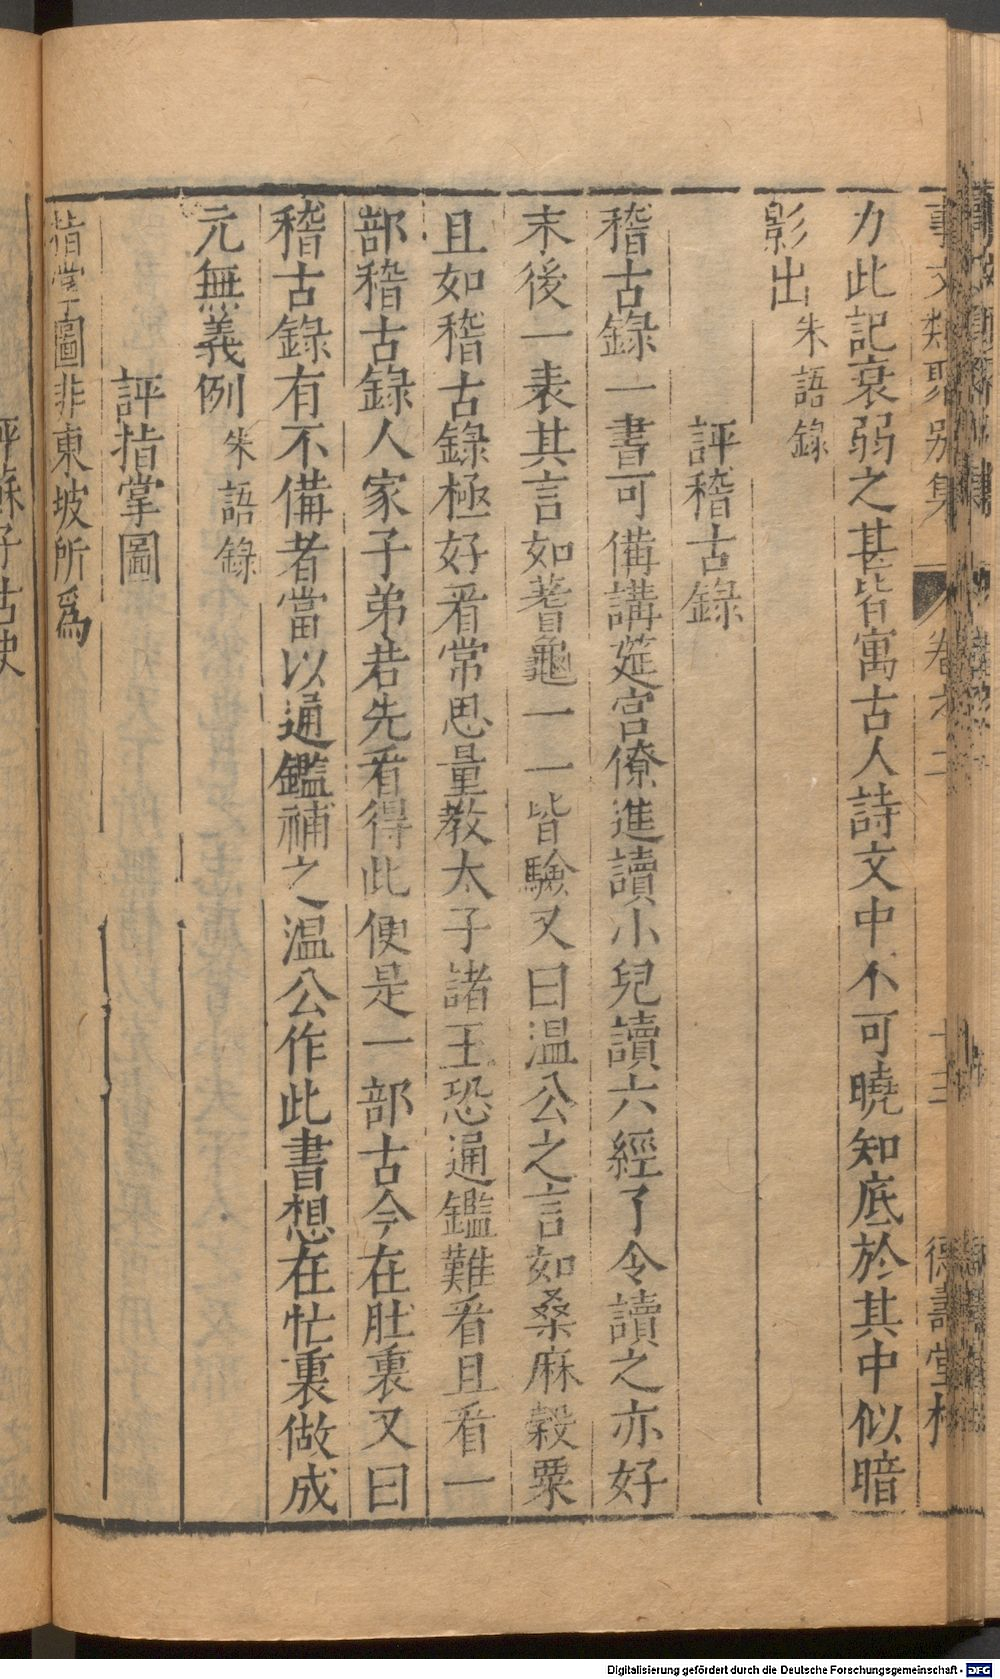 事文類聚別集 卷之二 十三 德壽堂梓
力此記衰弱之甚皆寓古人詩文中不可曉知底於其中似暗
影出朱語錄
評稽古錄
稽古錄一書可備講筵宮僚進讀小兒讀六經了令讀之亦好
末後一表其言如蓍龜一一皆驗又曰温公之言如桑麻穀粟
且如稽古錄極好看常思量教太子諸王恐通鑑難看且看一
部稽古錄人家子弟若先看得此便是一部古今在肚裏又曰
稽古錄有不備者當以通鑑補之温公作此書想在忙裏做成
元無義例朱語錄
評指掌圖
指掌圖非東坡所爲
評蘇子古史
Digitalisierung gefördert durch die Deutsche Forschungsgemeinschaft - DFG